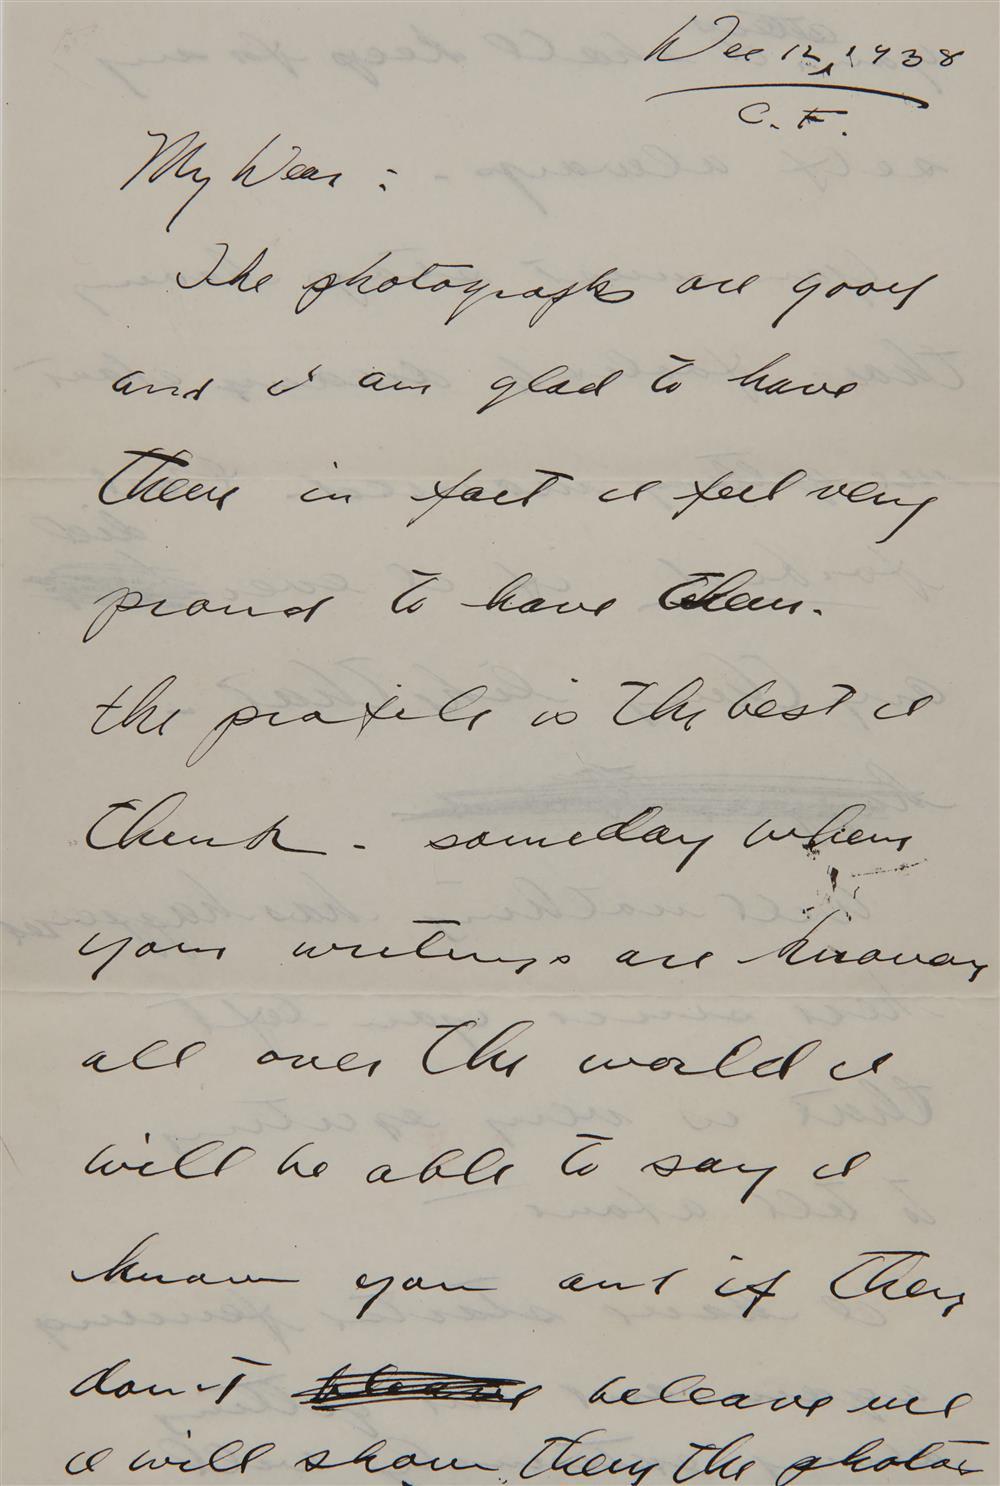 Dec 12, 1938
C. F.
My Dear :
The photographs are good
and I am glad to have
them in fact I feel very
proud to have them.
the profile is the best I
think - someday when
your writings are known
all over the world I
will be able to say I
know you and if they
don't beleave beleave me
I will show them the photos